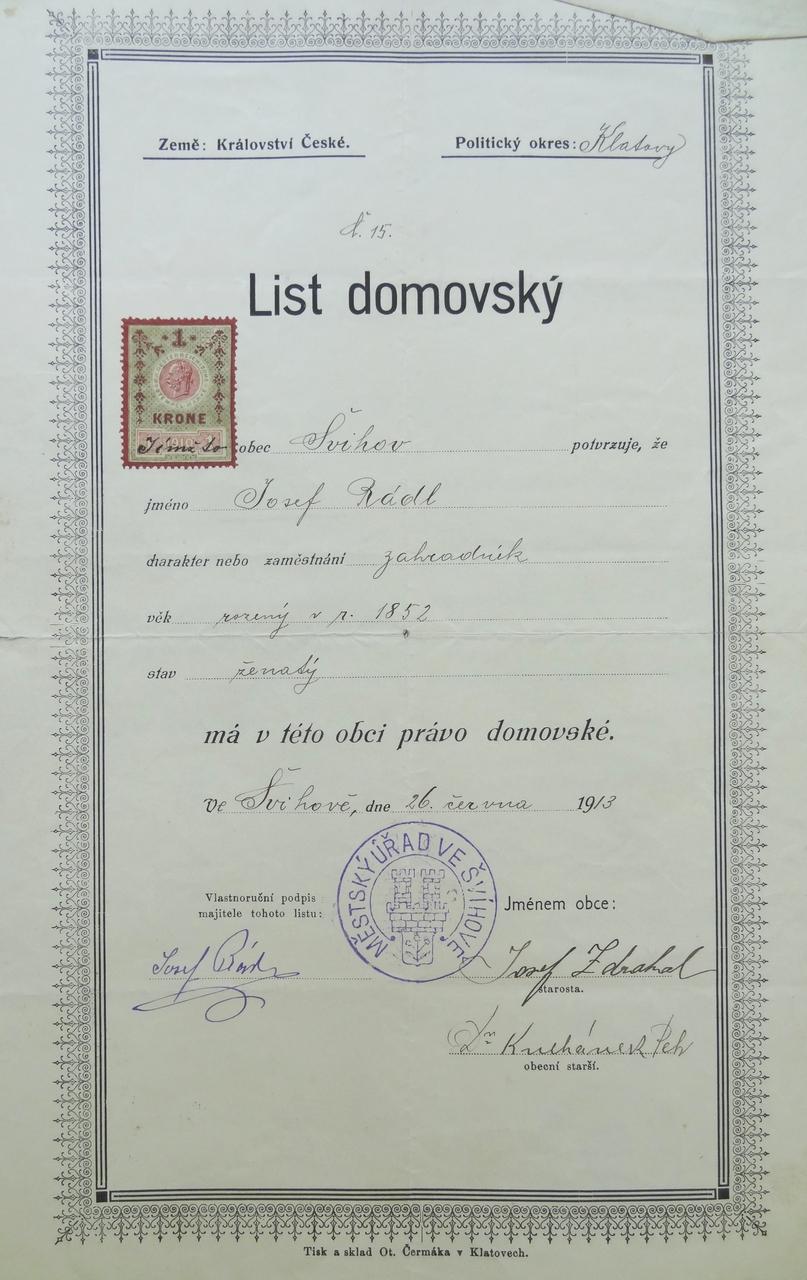 Země: Království České. Politický okres: Klatovy
č. 15.
List domovský
1
KRONE
1910
obec Švihov potvrzuje, že
jméno Josef Rádl
charakter nebo zaměstnání zahradník
věk rozený v r. 1852
stav ženatý
má v této obci právo domovské.
Ve Švihově, dne 26. června 1913
MĚSTSKÝ ÚŘAD VE ŠVÍHOVĚ
Vlastnoruční podpis
majitele tohoto listu:
Jménem obce:
Josef Rádl
Josef Zdrahal
starosta.
obecní starší.
Tisk a sklad Ot. Čermáka v Klatovech.